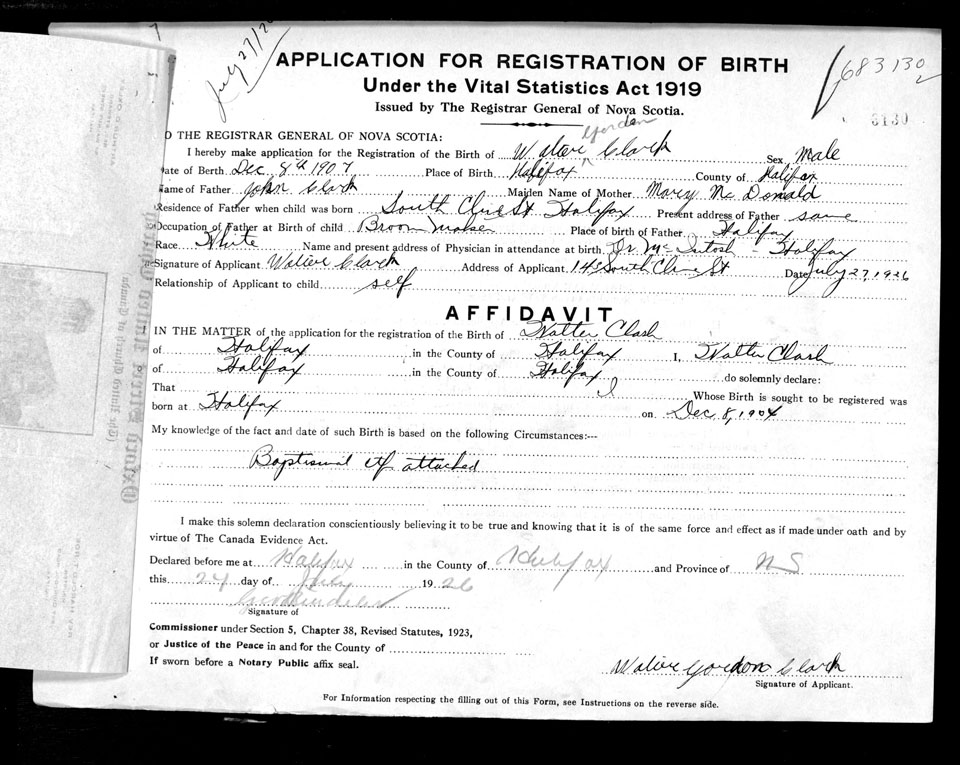 July 27/26
683130
APPLICATION FOR REGISTRATION OF BIRTH
Under the Vital Statistics Act 1919
Issued by The Registrar General of Nova Scotia.
3130
O THE REGISTRAR GENERAL OF NOVA SCOTIA:
Gordon
I hereby make application for the Registration of the Birth of Walter ^ Clark Sex Male
ate of Berth Dec. 8th 1907 Place of Birth Halifax County of Halifax
Name of Father John Clark Maiden Name of Mother Mary McDonald
Residence of Father when child was born South Cline St Halifax Present address of Father same
Occupation of Father at Birth of child Broom Maker Place of birth of Father Halifax
Race White Name and present address of Physician in attendance at birth Dr. McIntosh - Halifax
Signature of Applicant Walter Clark Address of Applicant South Cline St Date July 27, 1926
Relationship of Applicant to child self
AFFIDAVIT
IN THE MATTER of the application for the registration of the Birth of Walter Clark
of Halifax in the County of Halifax I, Walter Clark
of Halifax in the County of Halifax do solemnly declare:
That I Whose Birth is sought to be registered was
born at Halifax on Dec 8, 1904
My knowledge of the fact and date of such Birth is based on the following Circumstances:--
Baptismal ctf attached
I make this solemn declaration conscientiously believing it to be true and knowing that it is of the same force and effect as if made under oath and by
virtue of The Canada Evidence Act.
Declared before me at Halifax in the County of Halifax and Province of NS
this 27 day of July 1926
Signature of
Commissioner under Section 5, Chapter 38, Revised Statutes, 1923,
or Justice of the Peace in and for the County of
If sworn before a Notary Public affix seal.
Walter Gordon Clark
Signature of Applicant.
For Information respecting the filling out of this Form, see Instructions on the reverse side.